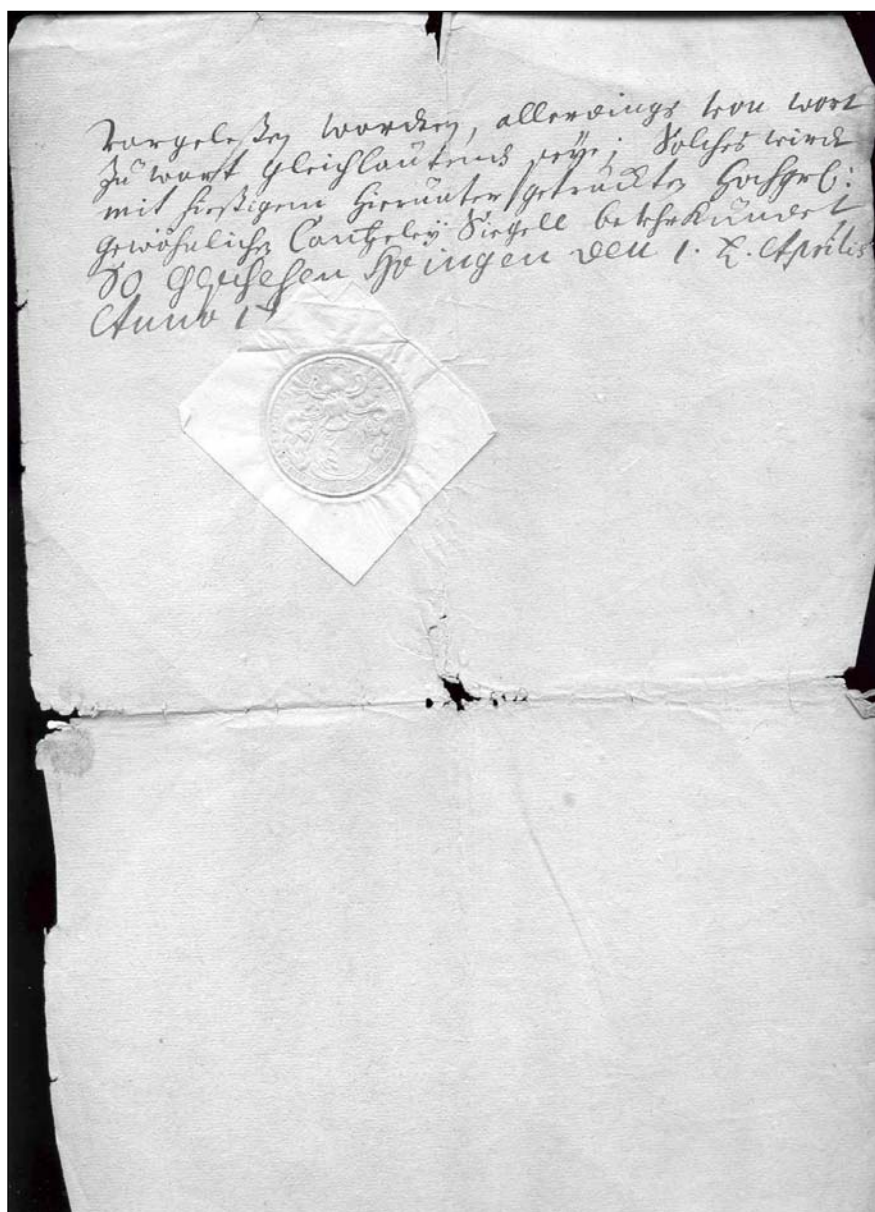 vorgeleßen worden, allerdings von wort
zu wort gleichlautend seye; Solches wirdt
mit hießigem hierunter getruckten Hochgrl:
gewöhnlichen Cantzeley Siegell beuhrkundet
So geschehen den 1. Aprilis
Anno 1